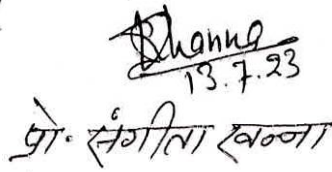 SKhanna
13.7.23
प्रो. संगीता खन्ना